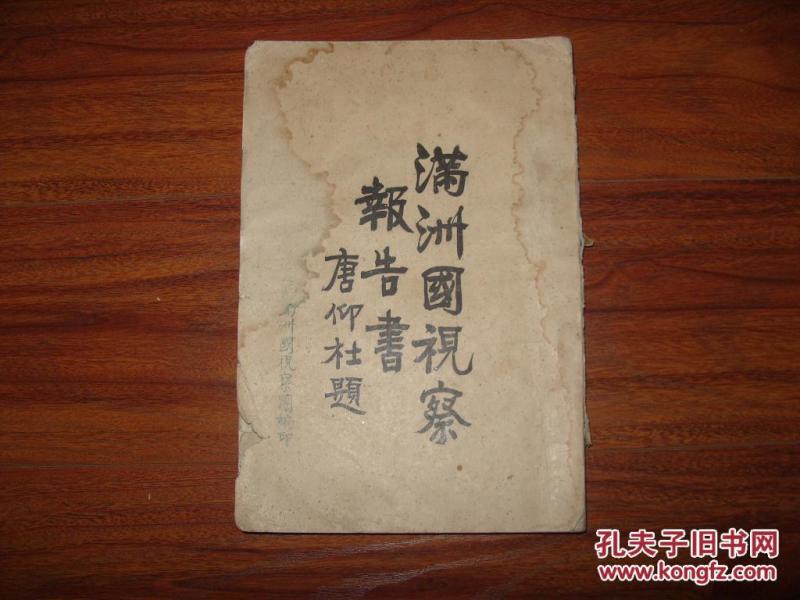 滿洲國視察
報告書
唐仰杜題
洲國視察團編印
孔夫子旧书网
www.kongfz.com